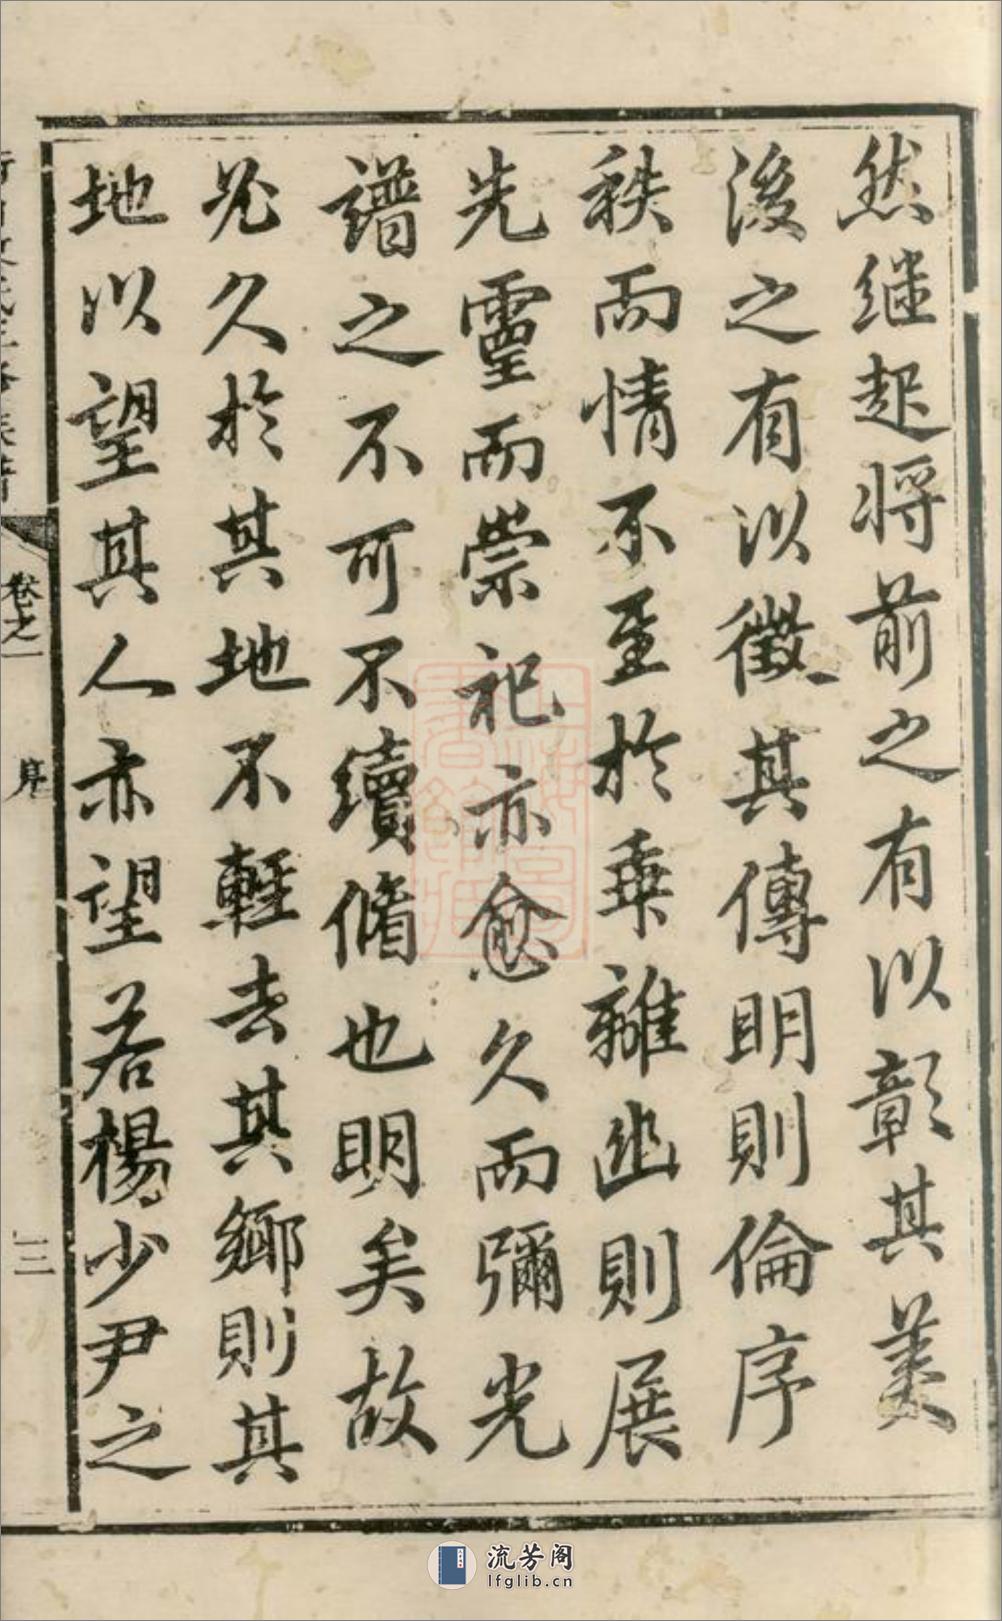 然继起将前之有以彰其美
後之有以徵其傳明則倫序
秩而情不至於乗離幽則展
先靈而崇祀亦愈久而彌光
譜之不可不續脩也明矣故
必久於其地不輕去其鄉則其
地以望其人亦望若楊少尹之
卷之一
序
三
流芳阁
lfglib.cn